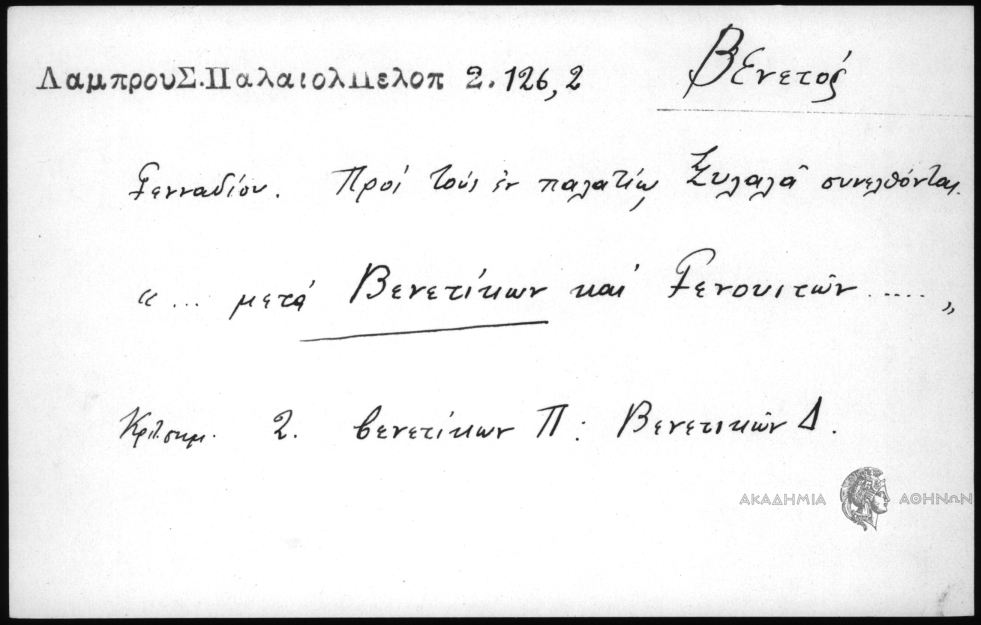 ΛαμπρουΣ.ΠαλαιολΠελοπ 2.126,2
Βενετός
Γενναδίου. Πρὸς τοὺς ἐν παλατίῳ Ξυλαλᾶ συνελθόντας.
“ ... μετὰ Βενετίκων καὶ Γενουιτῶν ..... „
Κριτ.σημ. 2. βενετίκων Π : Βενετικῶν Δ.
ΑΚΑΔΗΜΙΑ ΑΘΗΝΩΝ